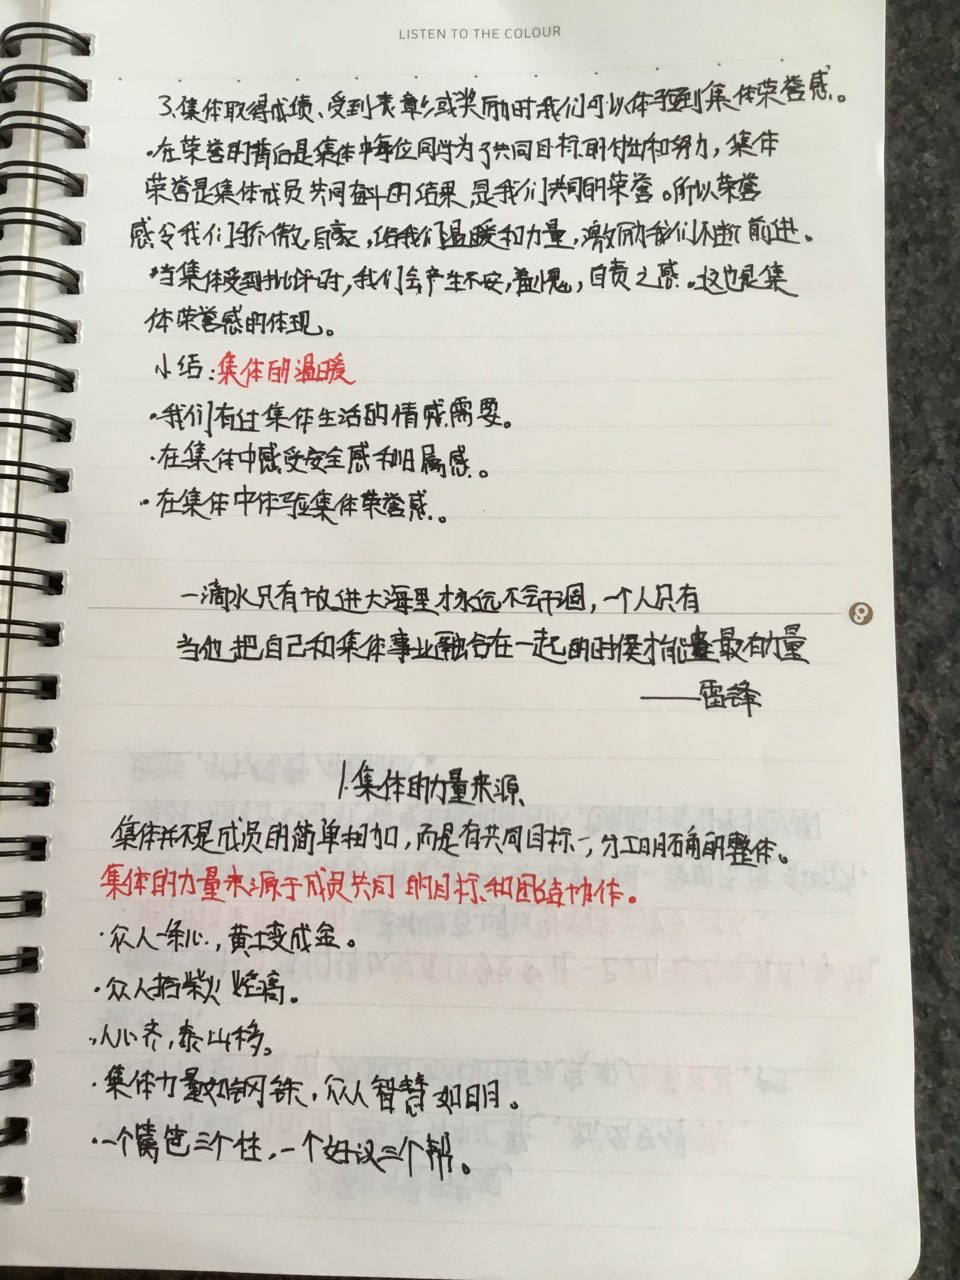 LISTEN TO THE COLOUR
3.集体取得成绩、受到表彰或奖励时我们可以体验到集体荣誉感。
·在荣誉的背后是集体中每位同学为了共同目标的付出和努力，集体
荣誉是集体成员共同奋斗的结果,是我们共同的荣誉。所以荣誉
感令我们骄傲、自豪，给我们温暖和力量，激励我们不断前进。
·当集体受到批评时，我们会产生不安，羞愧，自责之感。这也是集
体荣誉感的体现。
小结：集体的温暖
·我们有过集体生活的情感需要。
·在集体中感受安全感和归属感。
·在集体中体验集体荣誉感。
一滴水只有放进大海里才永远不会干涸，一个人只有
当他把自己和集体事业融合在一起的时候才能最有力量
——雷锋
1.集体的力量来源
集体并不是成员的简单相加，而是有共同目标、分工明确的整体。
集体的力量来源于成员共同的目标和团结协作。
·众人一条心，黄土变成金。
·众人拾柴火焰高。
·人心齐，泰山移。
·集体力量如钢铁，众人智慧如日月。
·一个篱笆三个桩，一个好汉三个帮。